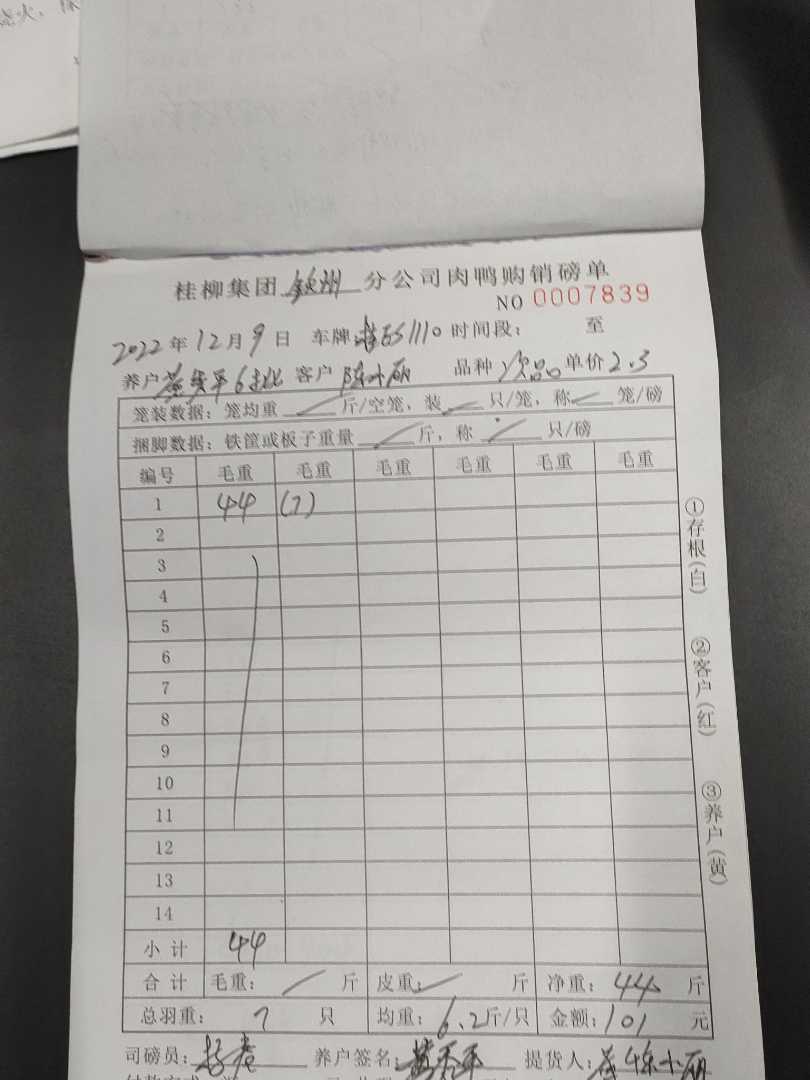 烧火,保
桂柳集团 钦州 分公司肉鸭购销磅单
NO 0007839
2022 年 12 月 9 日 车牌: 1110 时间段: 至
养户 平 客户 陈小丽 品种 次品 单价 2.3
笼装数据:笼均重 / 斤/空笼,装 / 只/笼,称 / 笼/磅
捆脚数据:铁筐或板子重量 / 斤,称 / 只/磅
编号 毛重 毛重 毛重 毛重 毛重 毛重
1 44 (7)
2
3
4
5
6
7
8
9
10
11
12
13
14
小计 44
合计 毛重: / 斤 皮重: / 斤 净重: 44 斤
总羽重: 7 只 均重: 6.2 斤/只 金额: 101 元
司磅员: 养户签名: 平 提货人: 陈小丽
①存根(白) ②客户(红) ③养户(黄)